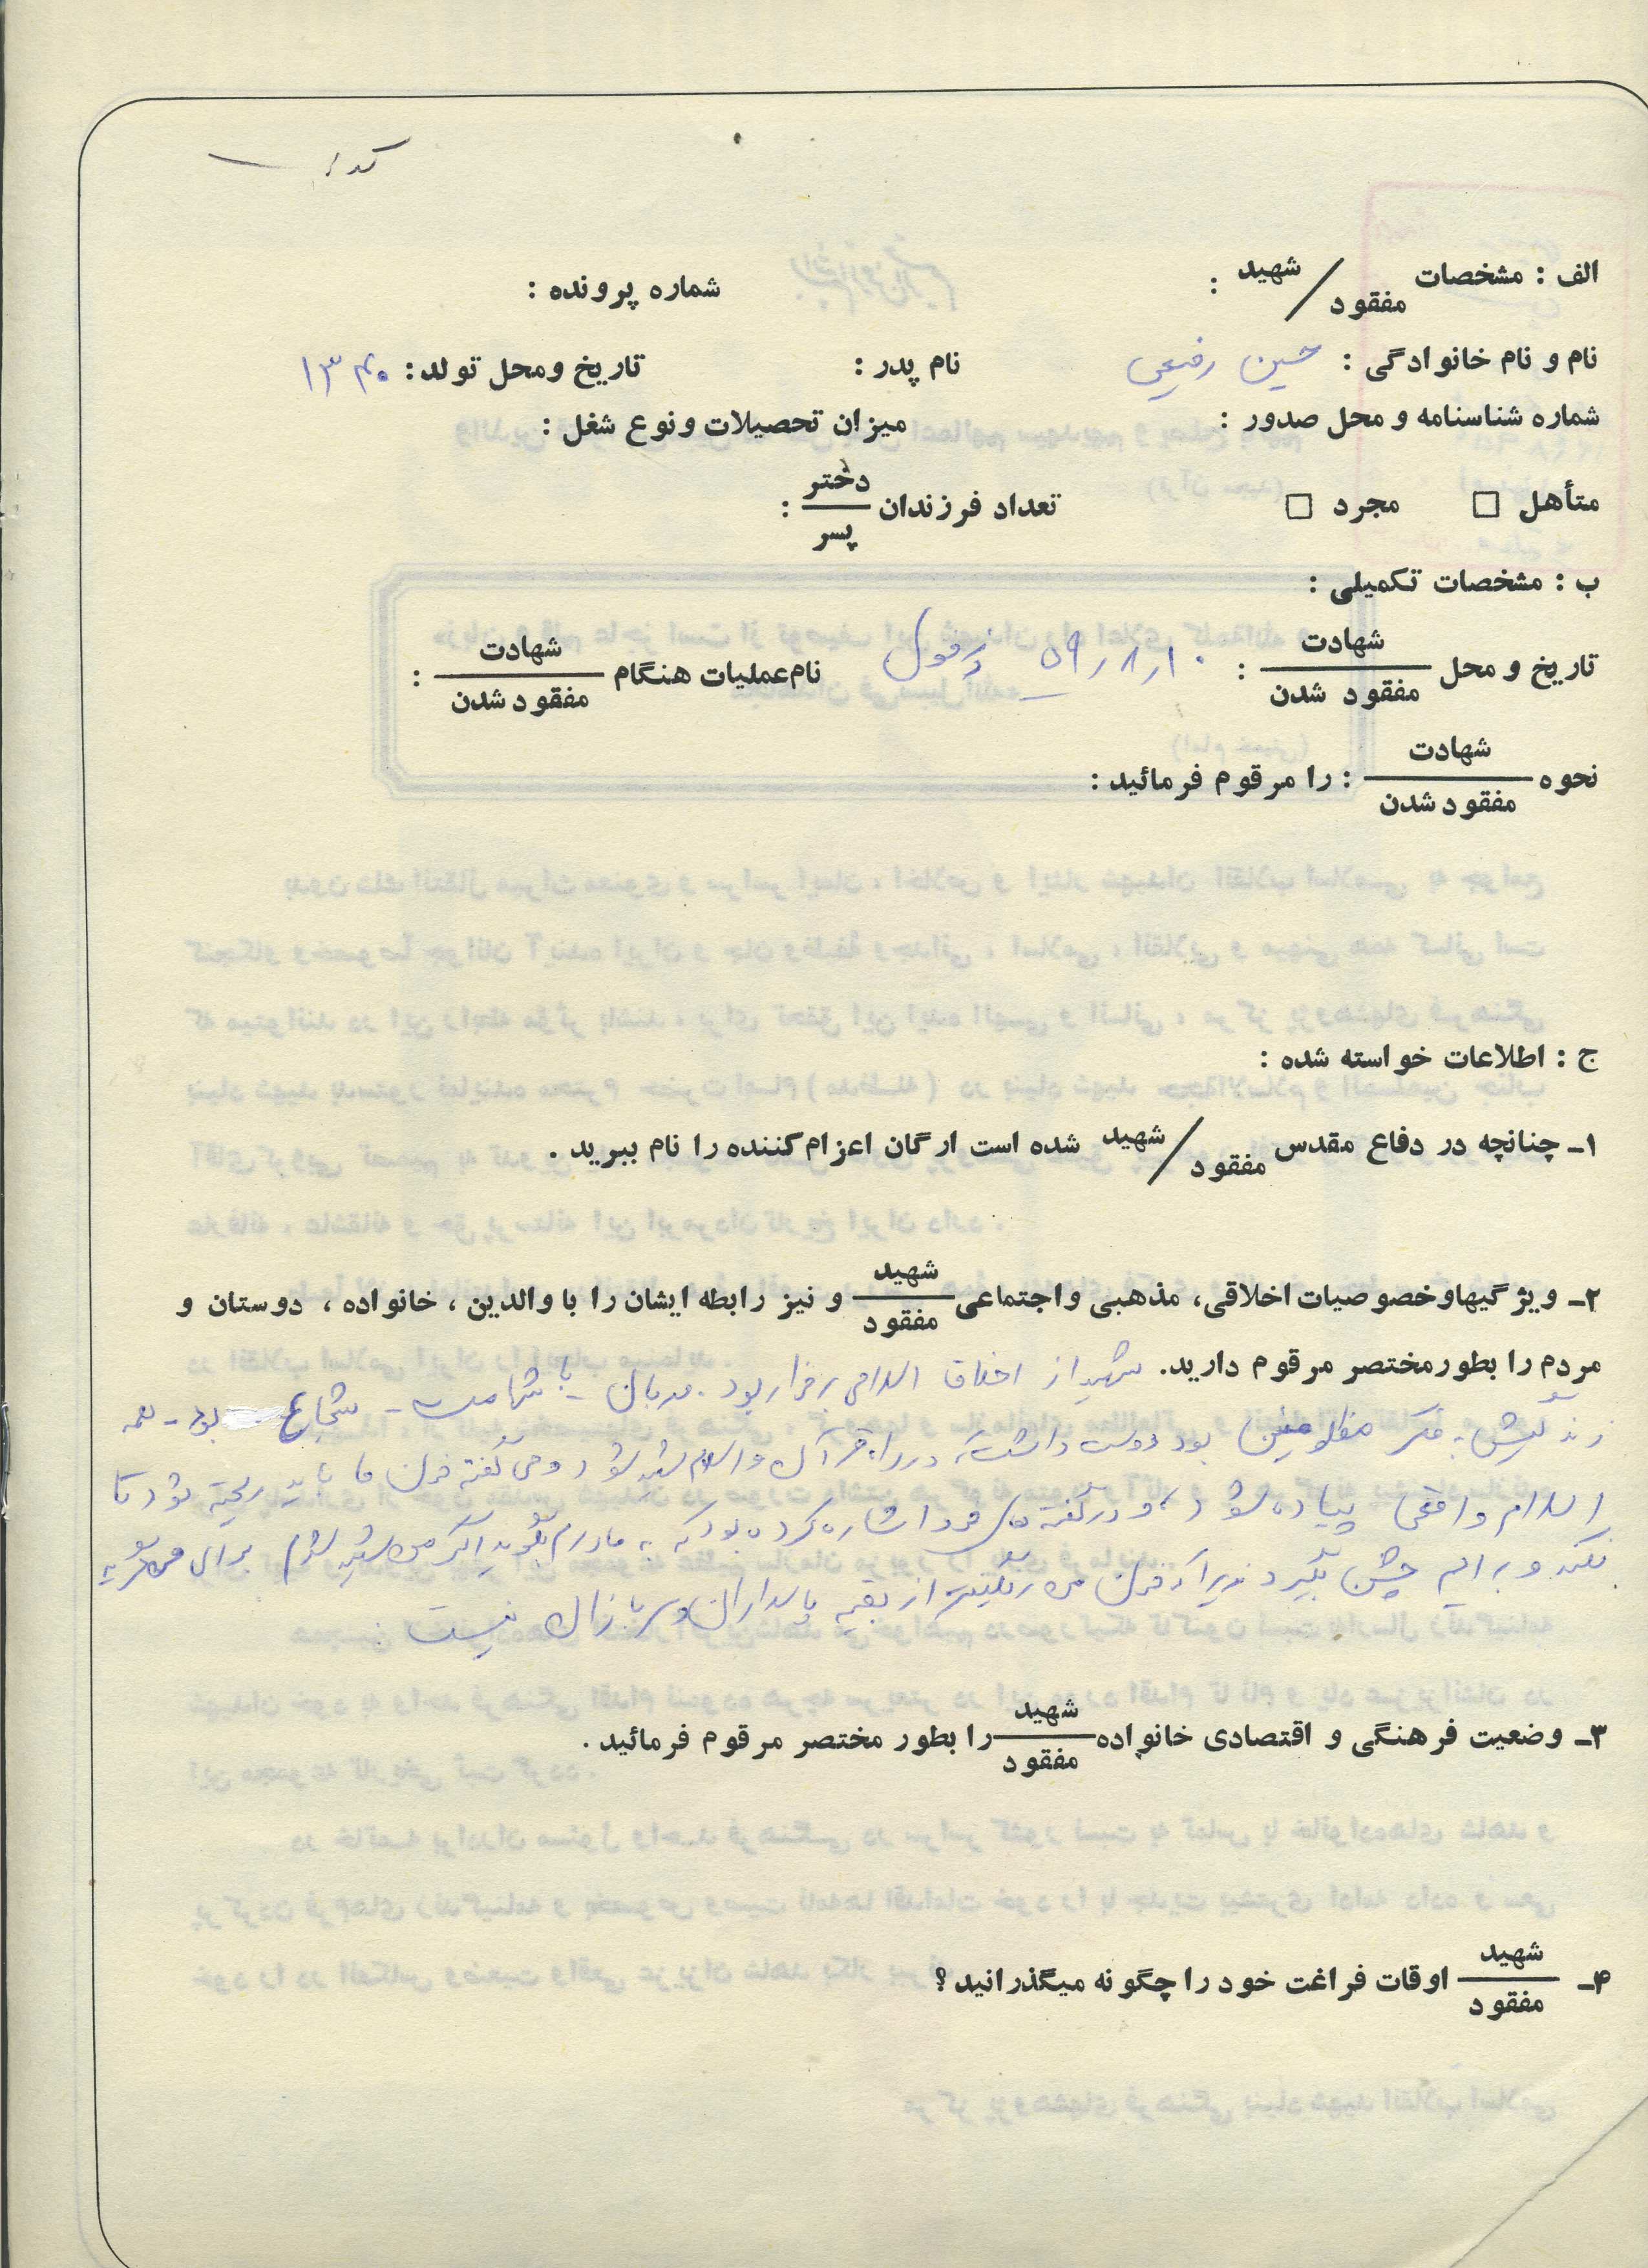 کد /
الف : مشخصات شهید / مفقود :
شماره پرونده :
نام و نام خانوادگی : حسین رفیعی
نام پدر :
تاریخ ومحل تولد : ۱۳۴۰
شماره شناسنامه و محل صدور :
میزان تحصیلات ونوع شغل :
متأهل □ مجرد □
تعداد فرزندان دختر / پسر :
ب : مشخصات تکمیلی :
تاریخ و محل شهادت / مفقود شدن : ۱۰ر۸ر۵۹ _ دزفول
نام عملیات هنگام شهادت / مفقود شدن :
نحوه شهادت / مفقود شدن : را مرقوم فرمائید :
ج : اطلاعات خواسته شده :
۱- چنانچه در دفاع مقدس شهید / مفقود شده است ارگان اعزام کننده را نام ببرید .
۲- ویژگیها وخصوصیات اخلاقی، مذهبی واجتماعی شهید / مفقود و نیز رابطه ایشان را با والدین ، خانواده ، دوستان و
مردم را بطور مختصر مرقوم دارید. شهید از اخلاق اسلامی برخوردار بود . مهربان - با شهامت - شجاع بود - همه
زندگیش به فکر مظلومین بود دوست داشت که در راه قرآن و اسلام شهید شود و می گفته خون ما باید ریخته شود تا
اسلام واقعی پیاده شود ، و در گفته های خود اشاره کرده بود که به مادرم بگویید اگر من شهید شدم برای من گریه
نکند و برایم جشن بگیرد زیرا که خون من رنگینتر از بقیه پاسداران و سربازان نیست .
۳- وضعیت فرهنگی و اقتصادی خانواده شهید / مفقود را بطور مختصر مرقوم فرمائید .
۴- شهید / مفقود اوقات فراغت خود را چگونه میگذرانید ؟